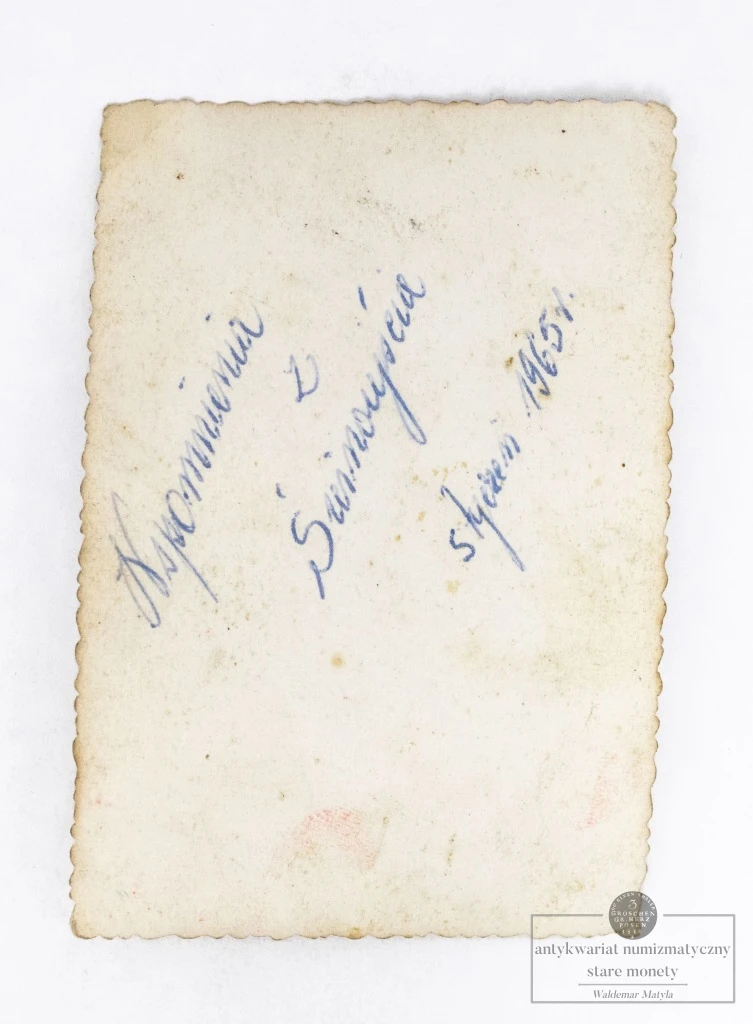 Wspomnienia
z
Świnoujścia
styczeń 1965 r.
3
GROSCHEN
GR. HERZ.
POSEN
antykwariat numizmatyczny
stare monety
Waldemar Matyla